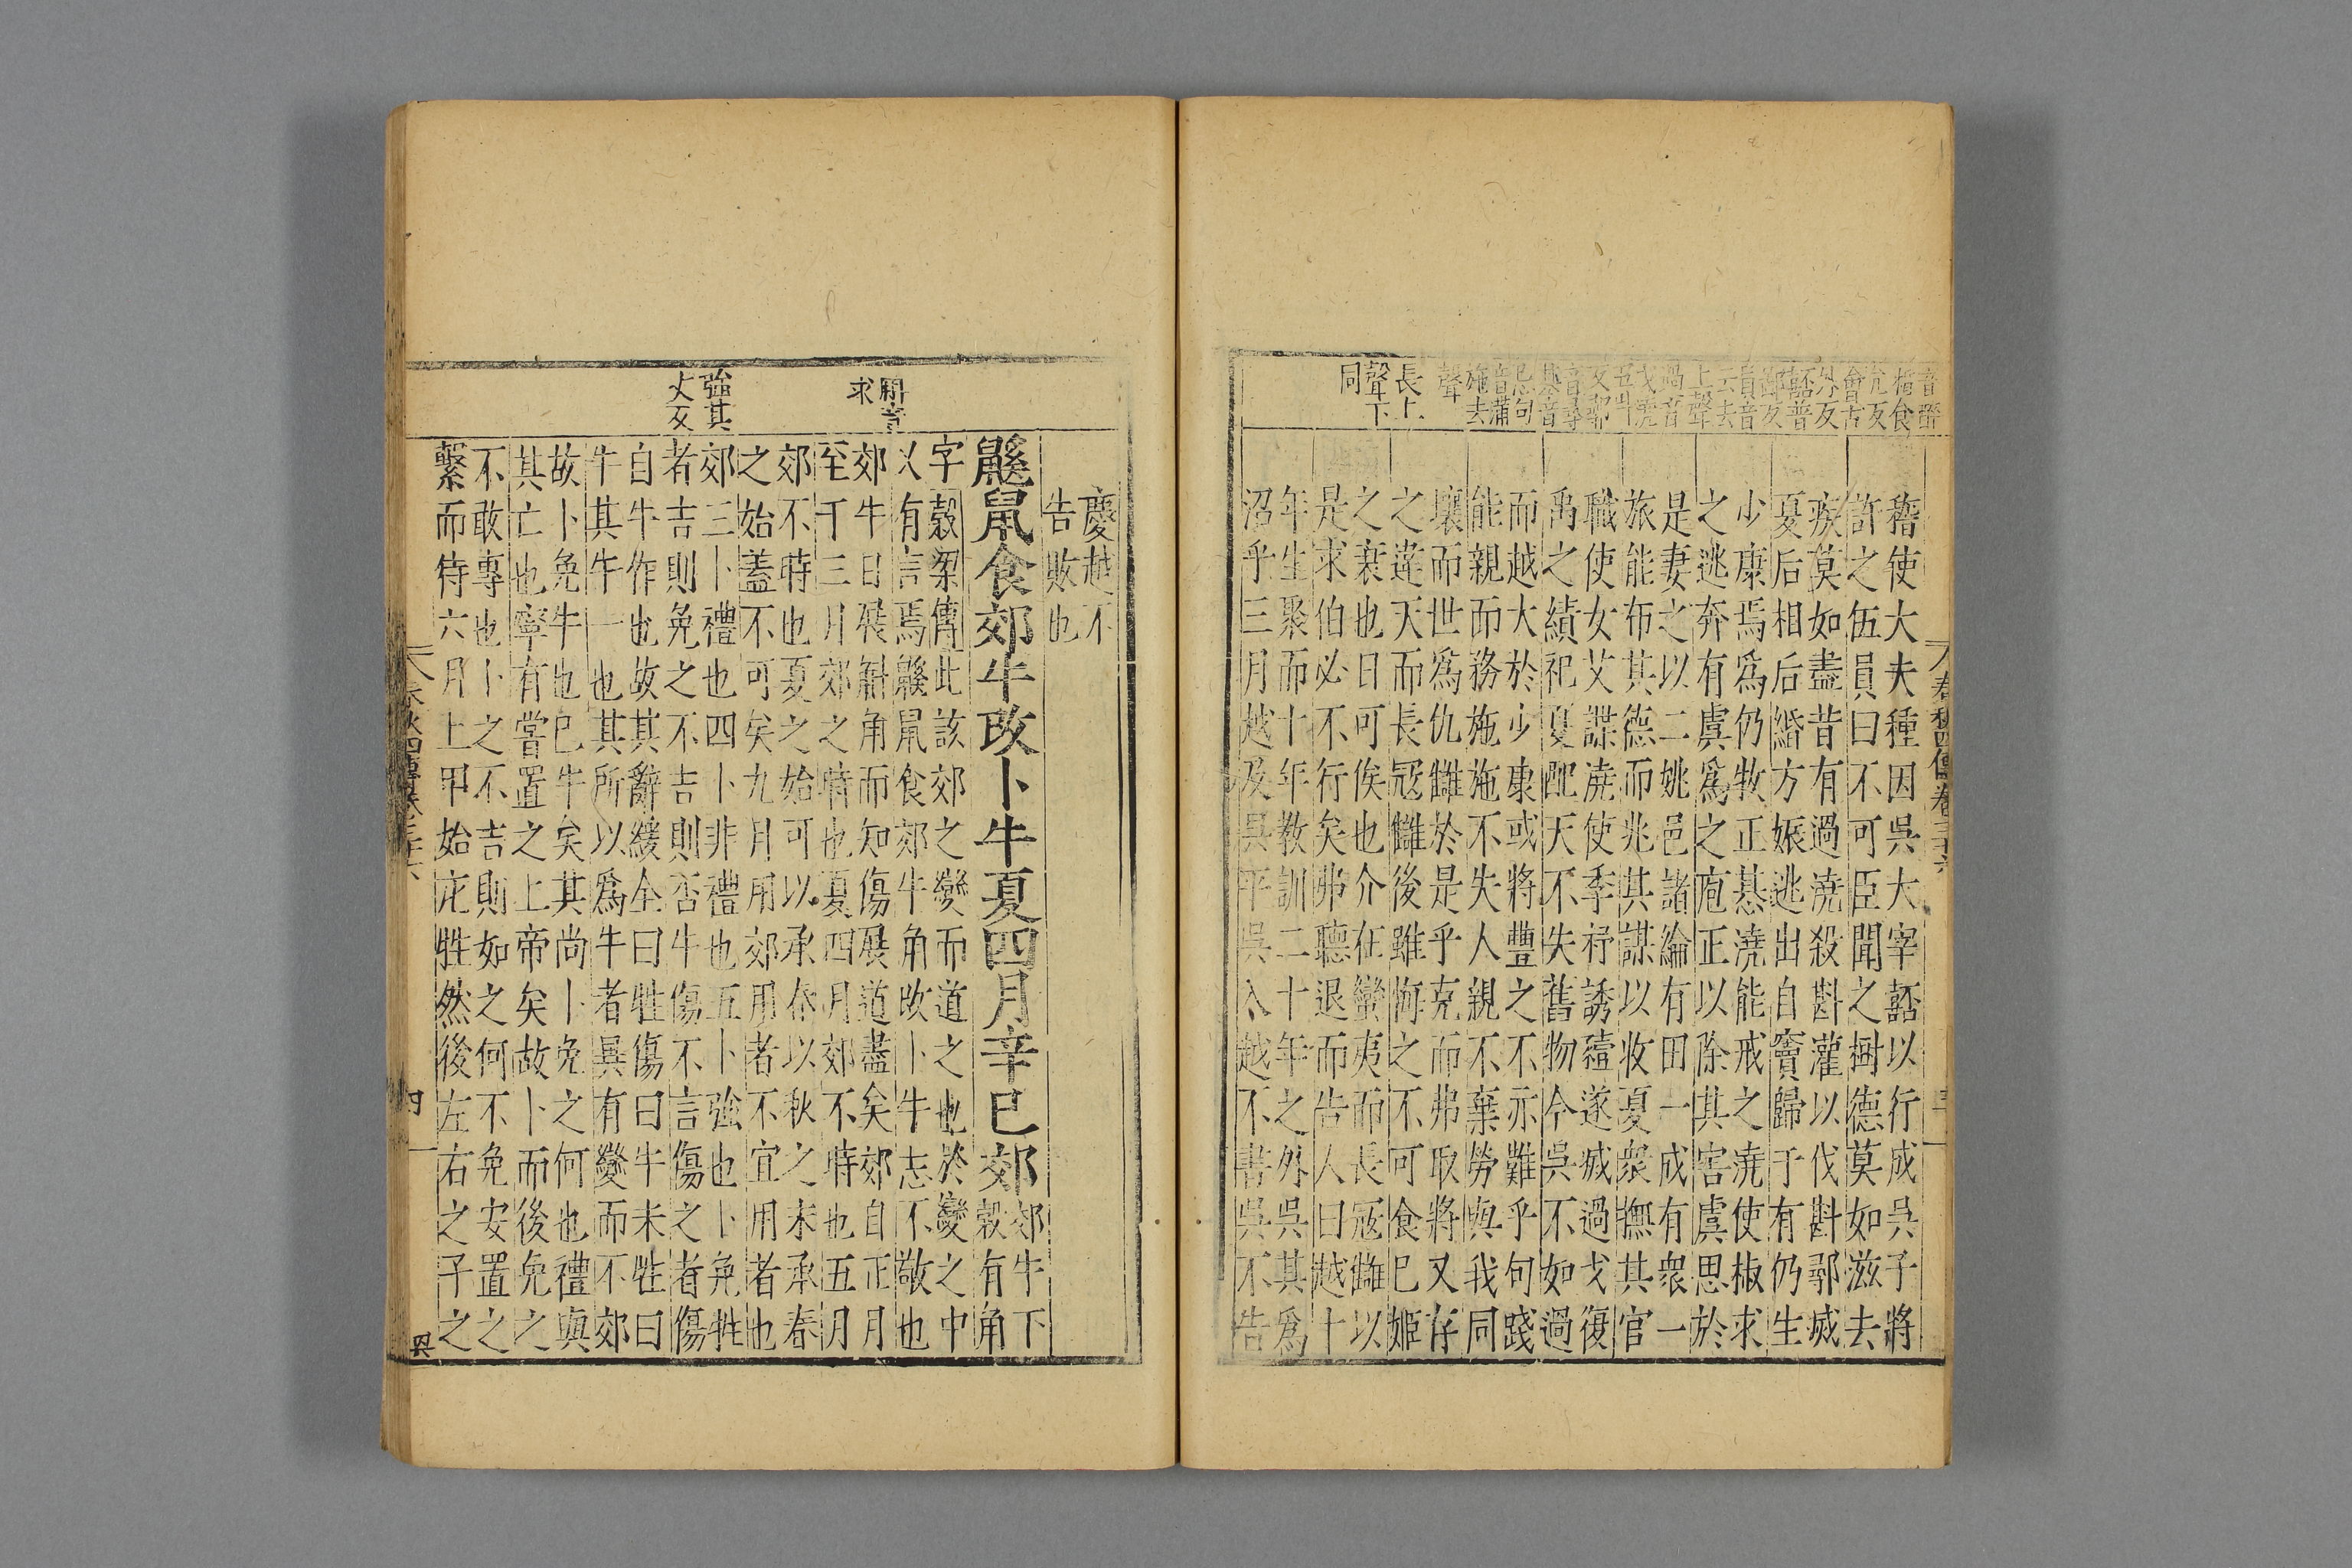 音醉
稽食
允反
會古
外反
嚭普
鄙反
員音
云去
上聲
過音
戈澆
五叫
反鄩
音尋
惎音
忌句
音蒲
施去
聲
長上
聲下
同
稽使大夫種因吳大宰嚭以行成吳子將
許之伍員曰不可臣聞之樹德莫如滋去
疾莫如盡昔有過澆殺斟灌以伐斟鄩滅
夏后相后緡方娠逃出自竇歸于有仍生
少康焉爲仍牧正惎澆能戒之澆使椒求
之逃奔有虞爲之庖正以除其害虞思於
是妻之以二姚邑諸綸有田一成有衆一
旅能布其德而兆其謀以收夏衆撫其官
職使女艾諜澆使季杼誘豷遂滅過戈復
禹之績祀夏配天不失舊物今吳不如過
而越大於少康或將豐之不亦難乎句踐
能親而務施施不失人親不棄勞與我同
壤而世爲仇讎於是乎克而弗取將又存
之違天而長寇讎後雖悔之不可食已姬
之衰也日可俟也介在蠻夷而長寇讎以
是求伯必不行矣弗聽退而告人曰越十
年生聚而十年教訓二十年之外吳其爲
沼乎三月越及吳平吳入越不書吳不告
春秋四傳卷三十六
斛音
求
強其
丈反
慶越不
告敗也
鼷鼠食郊牛改卜牛夏四月辛巳郊 郊牛下
穀有角
字穀梁傳此該郊之變而道之也於變之中
又有言焉鼷鼠食郊牛角改卜牛志不敬也
郊牛日展斛角而知傷展道盡矣郊自正月
至于三月郊之時也夏四月郊不時也五月
郊不時也夏之始可以承春以秋之末承春
之始蓋不可矣九月用郊用者不宜用者也
郊三卜禮也四卜非禮也五卜強也卜免牲
者吉則免之不吉則否牛傷不言傷之者傷
自牛作也故其辭緩全曰牲傷曰牛未牲曰
牛其牛一也其所以爲牛者異有變而不郊
故卜免牛也已牛矣其尚卜免之何也禮與
其亡也寧有嘗置之上帝矣故卜而後免之
不敢專也卜之不吉則如之何不免安置之
繫而待六月上甲始庀牲然後左右之子之
春秋四傳卷三十六
四